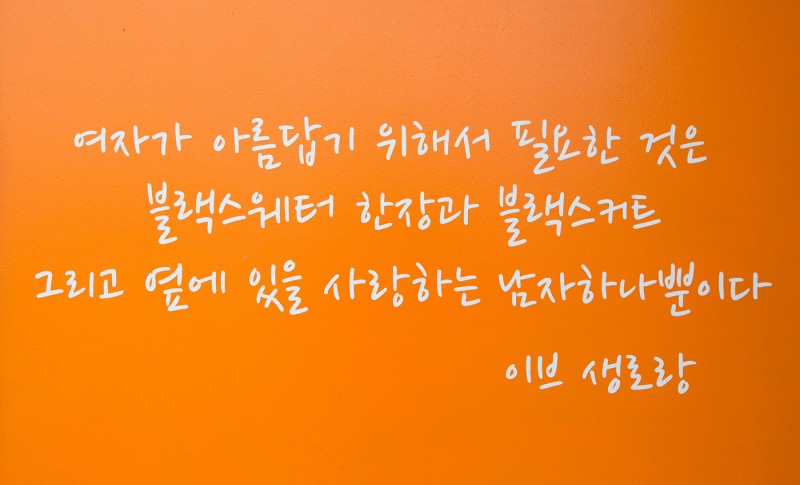 여자가 아름답기 위해서 필요한 것은
블랙스웨터 한장과 블랙스커트
그리고 옆에 있을 사랑하는 남자하나뿐이다
이브 생로랑